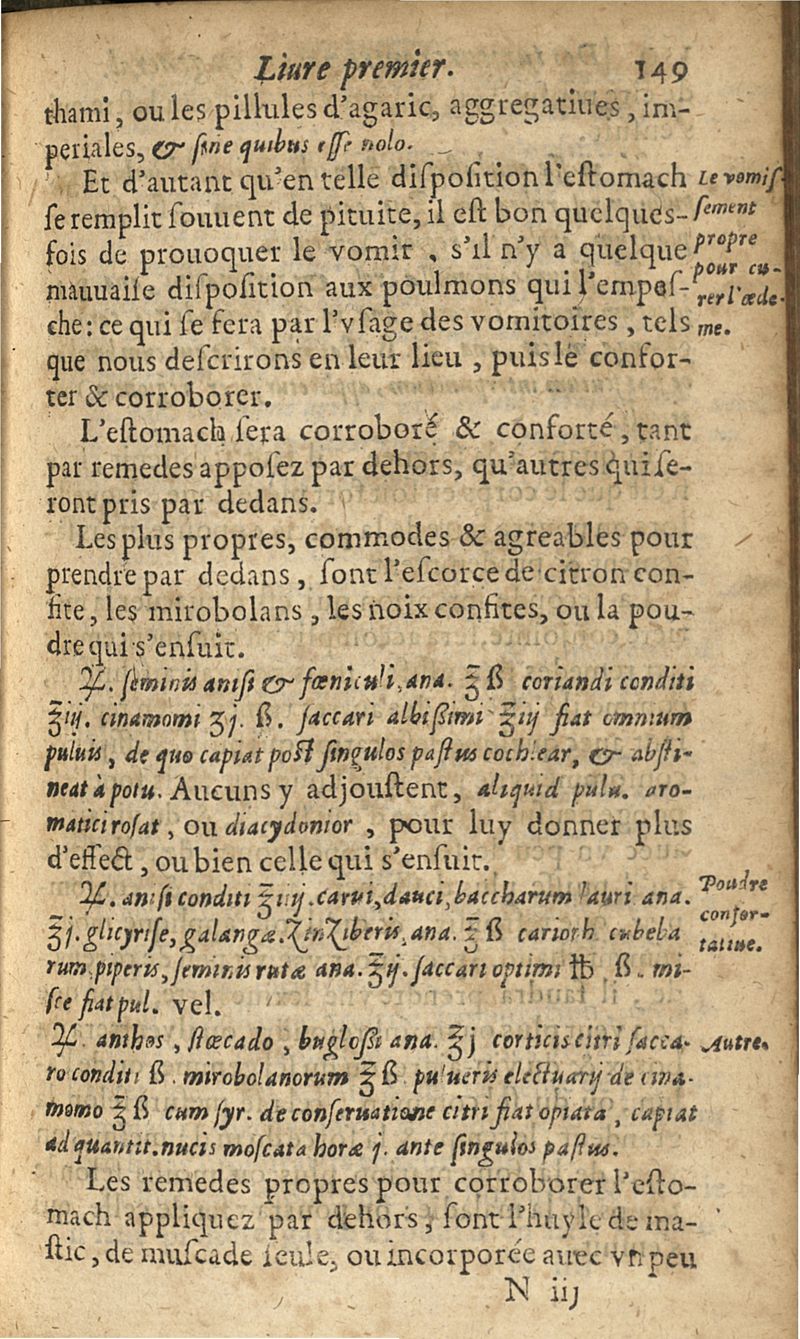 Liure premier. 149
thami, ou les pillules d'agaric, aggregatiues, im-
periales, & sine quibus esse nolo.
Et d'autant qu'en telle disposition l'estomach
se remplit souuent de pituite, il est bon quelques-
fois de prouoquer le vomir, s'il n'y a quelque
mauuaise disposition aux poulmons qui l'empes-
che: ce qui se fera par l'vsage des vomitoires, tels
que nous descrirons en leur lieu, puis le confor-
ter & corroborer.
Le vomis-
sement
propre
pour cu-
rer l'œde-
me.
L'estomach sera corroboré & conforté, tant
par remedes apposez par dehors, qu'autres qui se-
ront pris par dedans.
Les plus propres, commodes & agreables pour
prendre par dedans, sont l'escorce de citron con-
fite, les mirobolans, les noix confites, ou la pou-
dre qui s'ensuit.
♃. seminis anisi & fœniculi, ana. ℥ ß coriandi conditi
℥iij. cinamomi ʒj. ß. saccari albißimi ℥iij fiat omnium
puluis, de quo capiat post singulos pastus cochlear, & absti-
neat à potu. Aucuns y adjoustent, aliquid pulu. aro-
matici rosat, ou diacydonior, pour luy donner plus
d'effect, ou bien celle qui s'ensuit.
♃. anisi conditi ℥iiij. carui, dauci, baccharum lauri ana.
℥j. glicyrise, galangæ. Zinziberis, ana. ℥ ß carioph. cubeba
rum, piperis, seminis rutæ ana. ℥ij. saccari optimi ℔ ß. mi-
sce fiat pul. vel.
Poudre
confor-
tatiue.
♃. anthos, stœcado, buglossi ana. ℥j corticis citri sacca-
ro conditi ß. mirobolanorum ℥ ß pulueris electuarij de cina-
momo ℥ ß cum syr. de conseruatione citri fiat opiata, capiat
ad quantit. nucis moscata horæ j. ante singulos pastus.
Autre.
Les remedes propres pour corroborer l'esto-
mach appliquez par dehors, sont l'huyle de ma-
stic, de muscade seule, ou incorporée auec vn peu
N iij